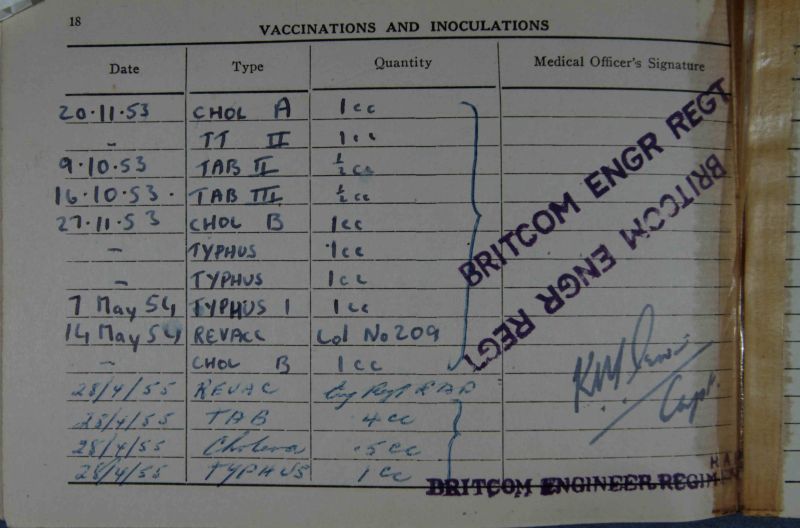 18
VACCINATIONS AND INOCULATIONS
Date Type Quantity Medical Officer's Signature
20.11.53 CHOL A 1cc
– TT II 1cc
9.10.53 TAB II ½cc
16.10.53. TAB III ½cc
27.11.53 CHOL B 1cc
– TYPHUS 1cc
– TYPHUS 1cc
7 May 54 TYPHUS 1 1cc
14 May 54 REVACC Lol No 209
– CHOL B 1cc
28/4/55 REVAC
28/4/55 TAB .4cc
28/4/55 Cholera .5cc
28/4/55 TYPHUS 1cc
BRITCOM ENGR REGT
BRITCOM ENGR REGT
Capt.
BRITCOM ENGINEER REGIM